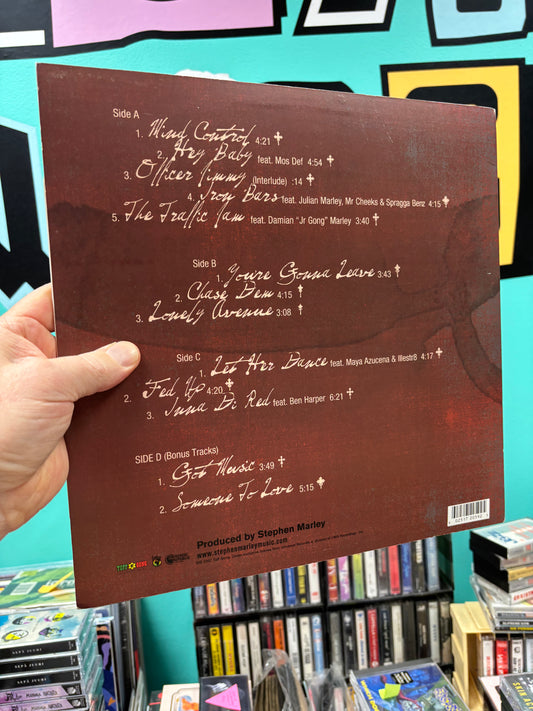 Side A
1. Mind Control 4:21
2. Hey Baby feat. Mos Def 4:54
3. Officer Jimmy (Interlude) :14
4. Iron Bars feat. Julian Marley, Mr Cheeks & Spragga Benz 4:15
5. The Traffic Jam feat. Damian "Jr Gong" Marley 3:40
Side B
1. You're Gonna Leave 3:43
2. Chase Dem 4:15
3. Lonely Avenue 3:08
Side C
1. Let Her Dance feat. Maya Azucena & Illestr8 4:17
2. Fed Up 4:20
3. Inna Di Red feat. Ben Harper 6:21
SIDE D (Bonus Tracks)
1. Got Music 3:49
2. Someone To Love 5:15
Produced by Stephen Marley
www.stephenmarleymusic.com
TUFF GONG